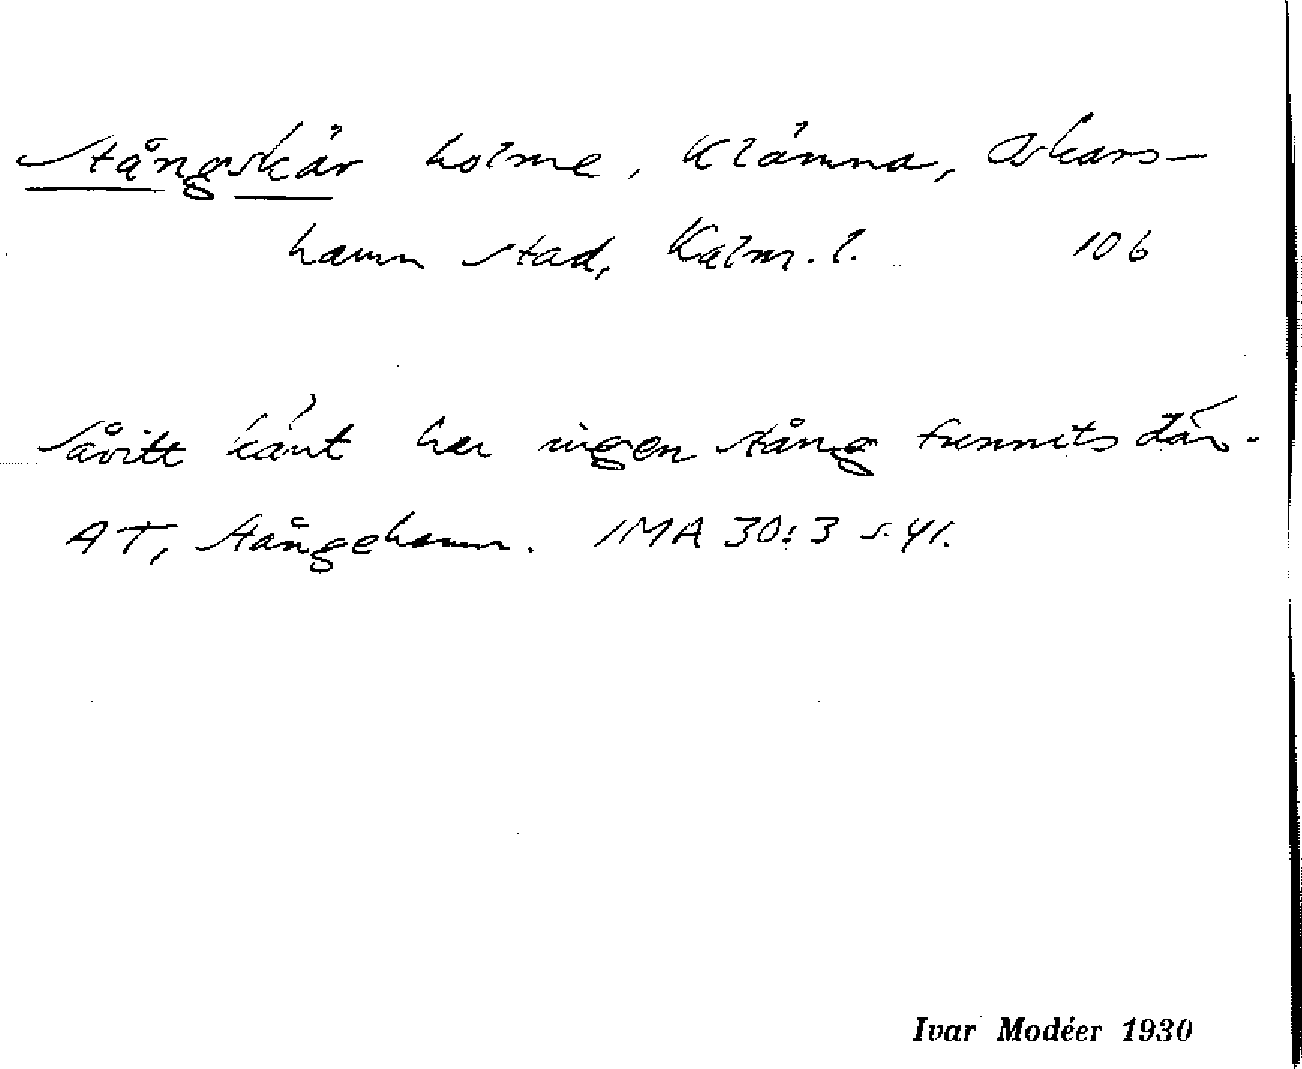 Stångskär holme, Klämna, Oskars-
hamn stad, Kalm. l. 106
Såvitt känt har ingen stång funnits där.
AT, Stångehamn. IMA 30:3 s. 41.
Ivar Modéer 1930